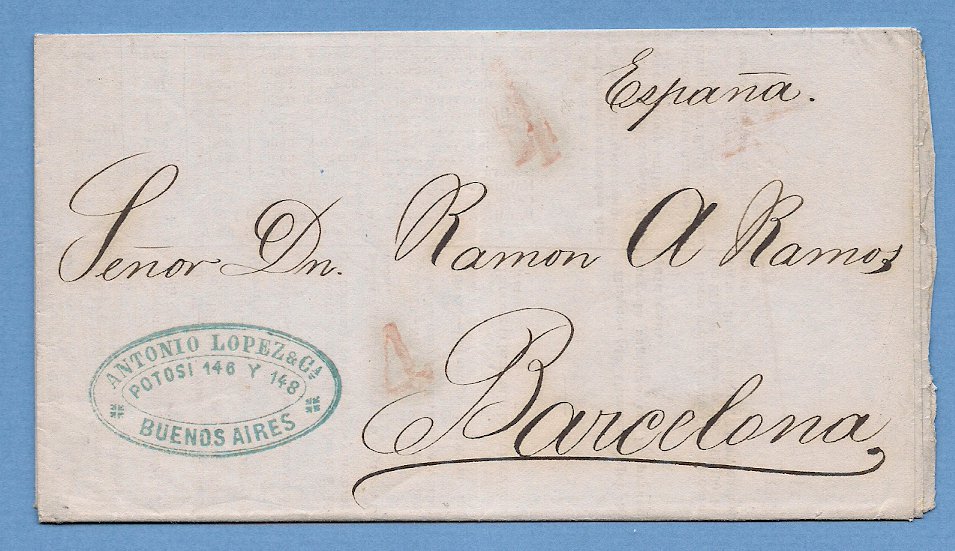 España.
Señor Dn. Ramon A Ramos
Barcelona
ANTONIO LOPEZ & Cª
POTOSI 146 Y 148
BUENOS AIRES
4